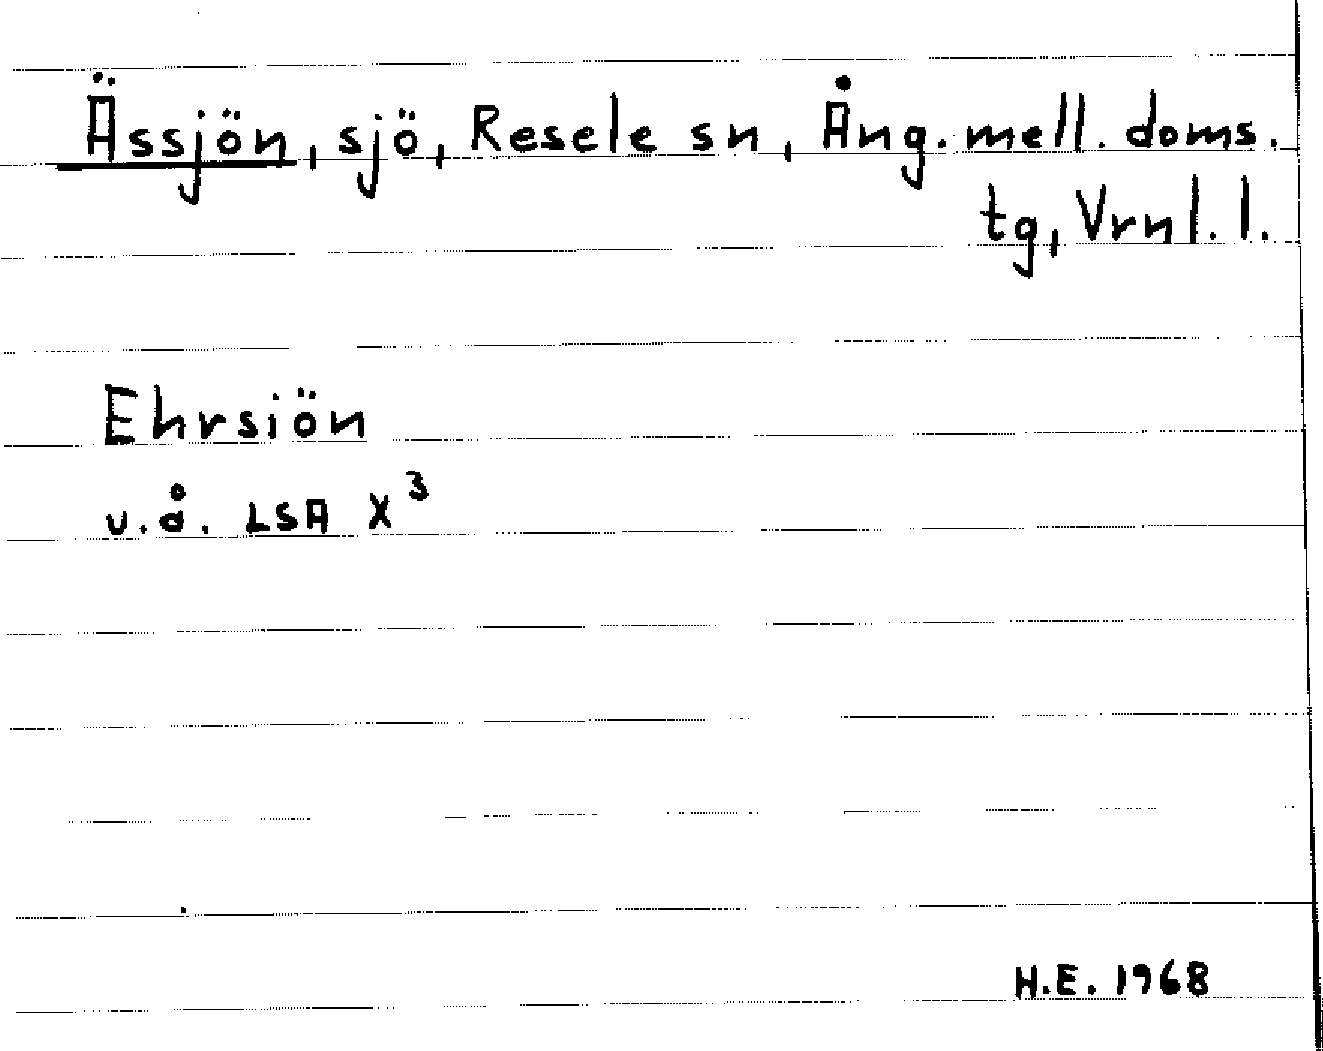 Ässjön, sjö, Resele sn, Ång. mell. doms.
tg, Vrnl. l.
Ehrsiön
u.å. LSA X³
H.E. 1968